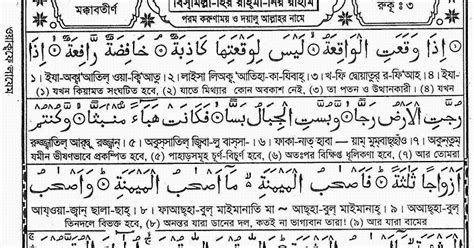 মক্কাবতীর্ণ
বিস্মিল্লা-হির রাহ্‌মা-নির রাহীম
পরম করুণাময় ও দয়ালু আল্লাহর নামে
রুকূ : ৩
ওয়াক্বফে লাযেম
إِذَا وَقَعَتِ الْوَاقِعَةُ ۝ لَيْسَ لِوَقْعَتِهَا كَاذِبَةٌ ۝ خَافِضَةٌ رَّافِعَةٌ ۝ إِذَا
১। ইযা-অক্ব‘আতিল্ ওয়া-ক্বি‘আতু। ২। লাইসা লিঅক্ব্ ‘আতিহা-কা-যিবাহ্। ৩। খ-ফি দ্বোয়াতুর্ র-ফি‘আহ্। ৪। ইযা-
(১) যখন কিয়ামত সংঘটিত হবে, (২) যাতে মিথ্যার কোন অবকাশ নেই, (৩) তা পতন ও উত্থানকারী। (৪) যখন
رُجَّتِ الْأَرْضُ رَجًّا ۝ وَبُسَّتِ الْجِبَالُ بَسًّا ۝ فَكَانَتْ هَبَاءً مُّنْبَثًّا ۝ وَكُنْتُمْ
রুজ্জাতিল্ আর্দ্বু রজ্জ্বান্। ৫। অবুস্সাতিল্ জ্বিবা-লু বাস্সা-। ৬। ফাকা-নাত্ হাবা — য়াম্ মুম্বাছ্ছাঁও। ৭। অকুন্তুম্
যমীন ভীষণভাবে প্রকম্পিত হবে, (৫) পাহাড়সমূহ চূর্ণ-বিচূর্ণ হবে, (৬) অতঃপর বিক্ষিপ্ত ধূলিকণা হবে, (৭) আর তোমরা
أَزْوَاجًا ثَلَاثَةً ۝ فَأَصْحَابُ الْمَيْمَنَةِ مَا أَصْحَابُ الْمَيْمَنَةِ ۝ وَأَصْحَابُ
আয্ওয়া-জ্বান্ ছালা-ছাহ্। ৮। ফাআছ্হা-বুল্ মাইমানাতি মা — আছ্হা-বুল্ মাইমানাহ্। ৯। অআছ্হা-বুল্
তিনদলে বিভক্ত হবে, (৮) অনন্তর যারা ডানের দল, কতই না ভাগ্যবান তারা! (৯) আর যারা বামের